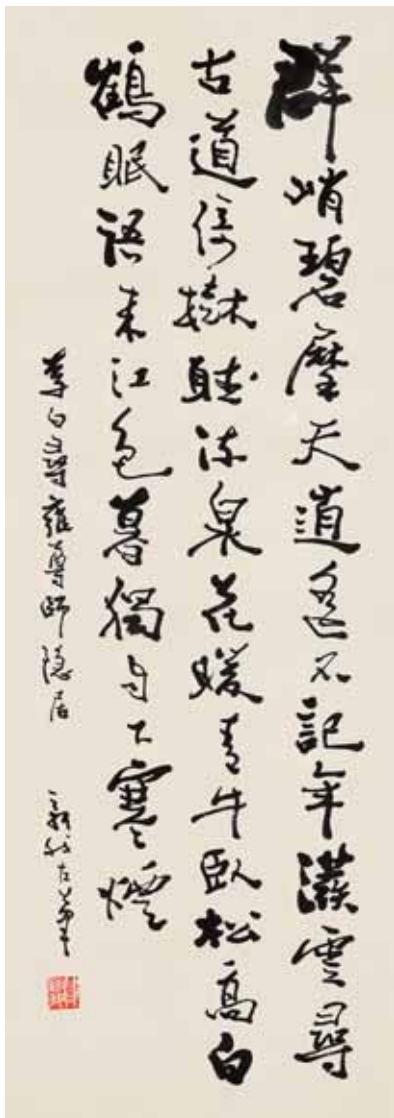 群峭碧摩天逍遙不記年撥雲尋
古道倚樹聽流泉花暖青牛臥松高白
鶴眠語來江色暮獨自下寒煙
李白尋雍尊師隱居 新我左筆